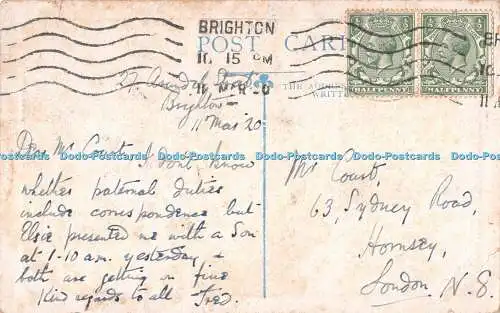 BRIGHTON
10 15 PM
11 MAR 20
POST CARD
THE ADDRESS
WRITTEN
HALFPENNY HALFPENNY
27 Arundel
Brighton
11 Mar 20
Dear Mr Court, I don't know
whether paternal duties
include correspondence but
Elsie presented me with a Son
at 1-10 a.m. yesterday &
both are getting on fine
Kind regards to all Fred.
Mr Court,
63, Sydney Road,
Hornsey,
London N.8.
Dado-Postcards Dado-Postcards Dado-Postcards Dado-Postcards Dado-Postcards